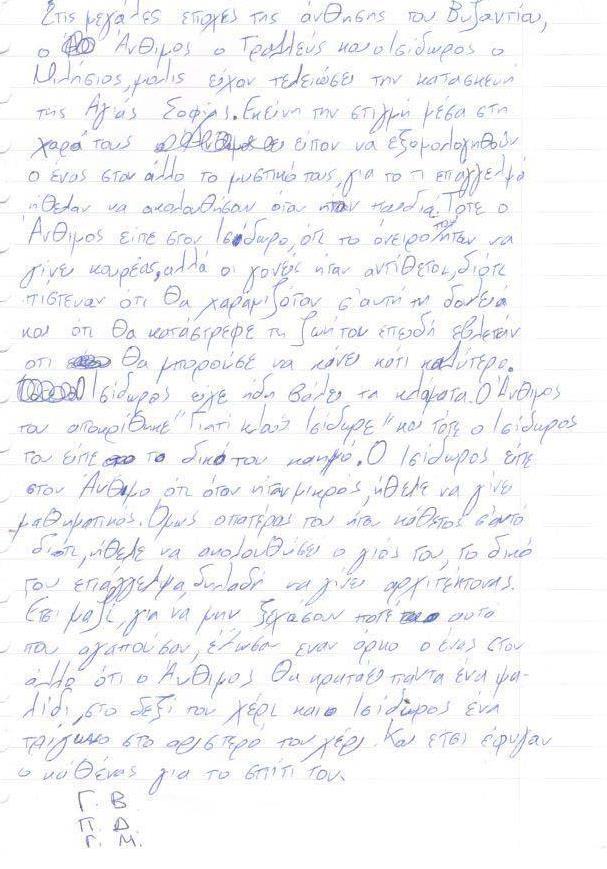 Στις μεγάλες εποχές της άνθησης του Βυζαντίου,
ο Άνθιμος ο Τραλλεύς και ο Ισίδωρος ο
Μιλήσιος, μόλις είχαν τελειώσει την κατασκευή
της Αγιάς Σοφιάς. Εκείνη την στιγμή μέσα στη
χαρά τους είπαν να εξομολογηθούν
ο ένας στον άλλο το μυστικό τους, για το τι επάγγελμα
ήθελαν να ακολουθήσουν όταν ήταν παιδιά. Τότε ο
Άνθιμος είπε στον Ισίδωρο, ότι το όνειρο του ήταν να
γίνει κουρέας, αλλά οι γονείς ήταν αντίθετοι, διότι
πίστευαν ότι θα χαραμιζόταν σ'αυτή τη δουλειά
και ότι θα κατάστρεφε τη ζωή του επειδή έβλεπαν
οτι θα μπορούσε να κάνει κάτι καλύτερο.
Ισίδωρος είχε ήδη βάλει τα κλάματα. Ο Άνθιμος
του αποκρίθηκε "Γιατί κλαις Ισίδωρε" και τότε ο Ισίδωρος
του είπε το δικό του καημό. Ο Ισίδωρος είπε
στον Άνθιμο ότι όταν ήταν μικρός, ήθελε να γίνει
μαθηματικός. Όμως ο πατέρας του ήταν κάθετος σ'αυτό
διότι, ήθελε να ακολουθήσει ο γιός του, το δικό
του επάγγελμα, δηλαδή να γίνει αρχιτέκτονας.
Ετσι μαζί, για να μην ξεχάσουν ποτέ αυτό
που αγαπούσαν, έδωσαν εναν όρκο ο ένας στον
άλλο ότι ο Άνθιμος θα κρατάει πάντα ένα ψα-
λίδι, στο δεξί του χέρι και ο Ισίδωρος ένα
τρίγωνο στο αριστερό του χέρι. Και ετσι έφυγαν
ο καθένας για το σπίτι του.
Γ. Β.
Π. Δ.
Γ. Μ.